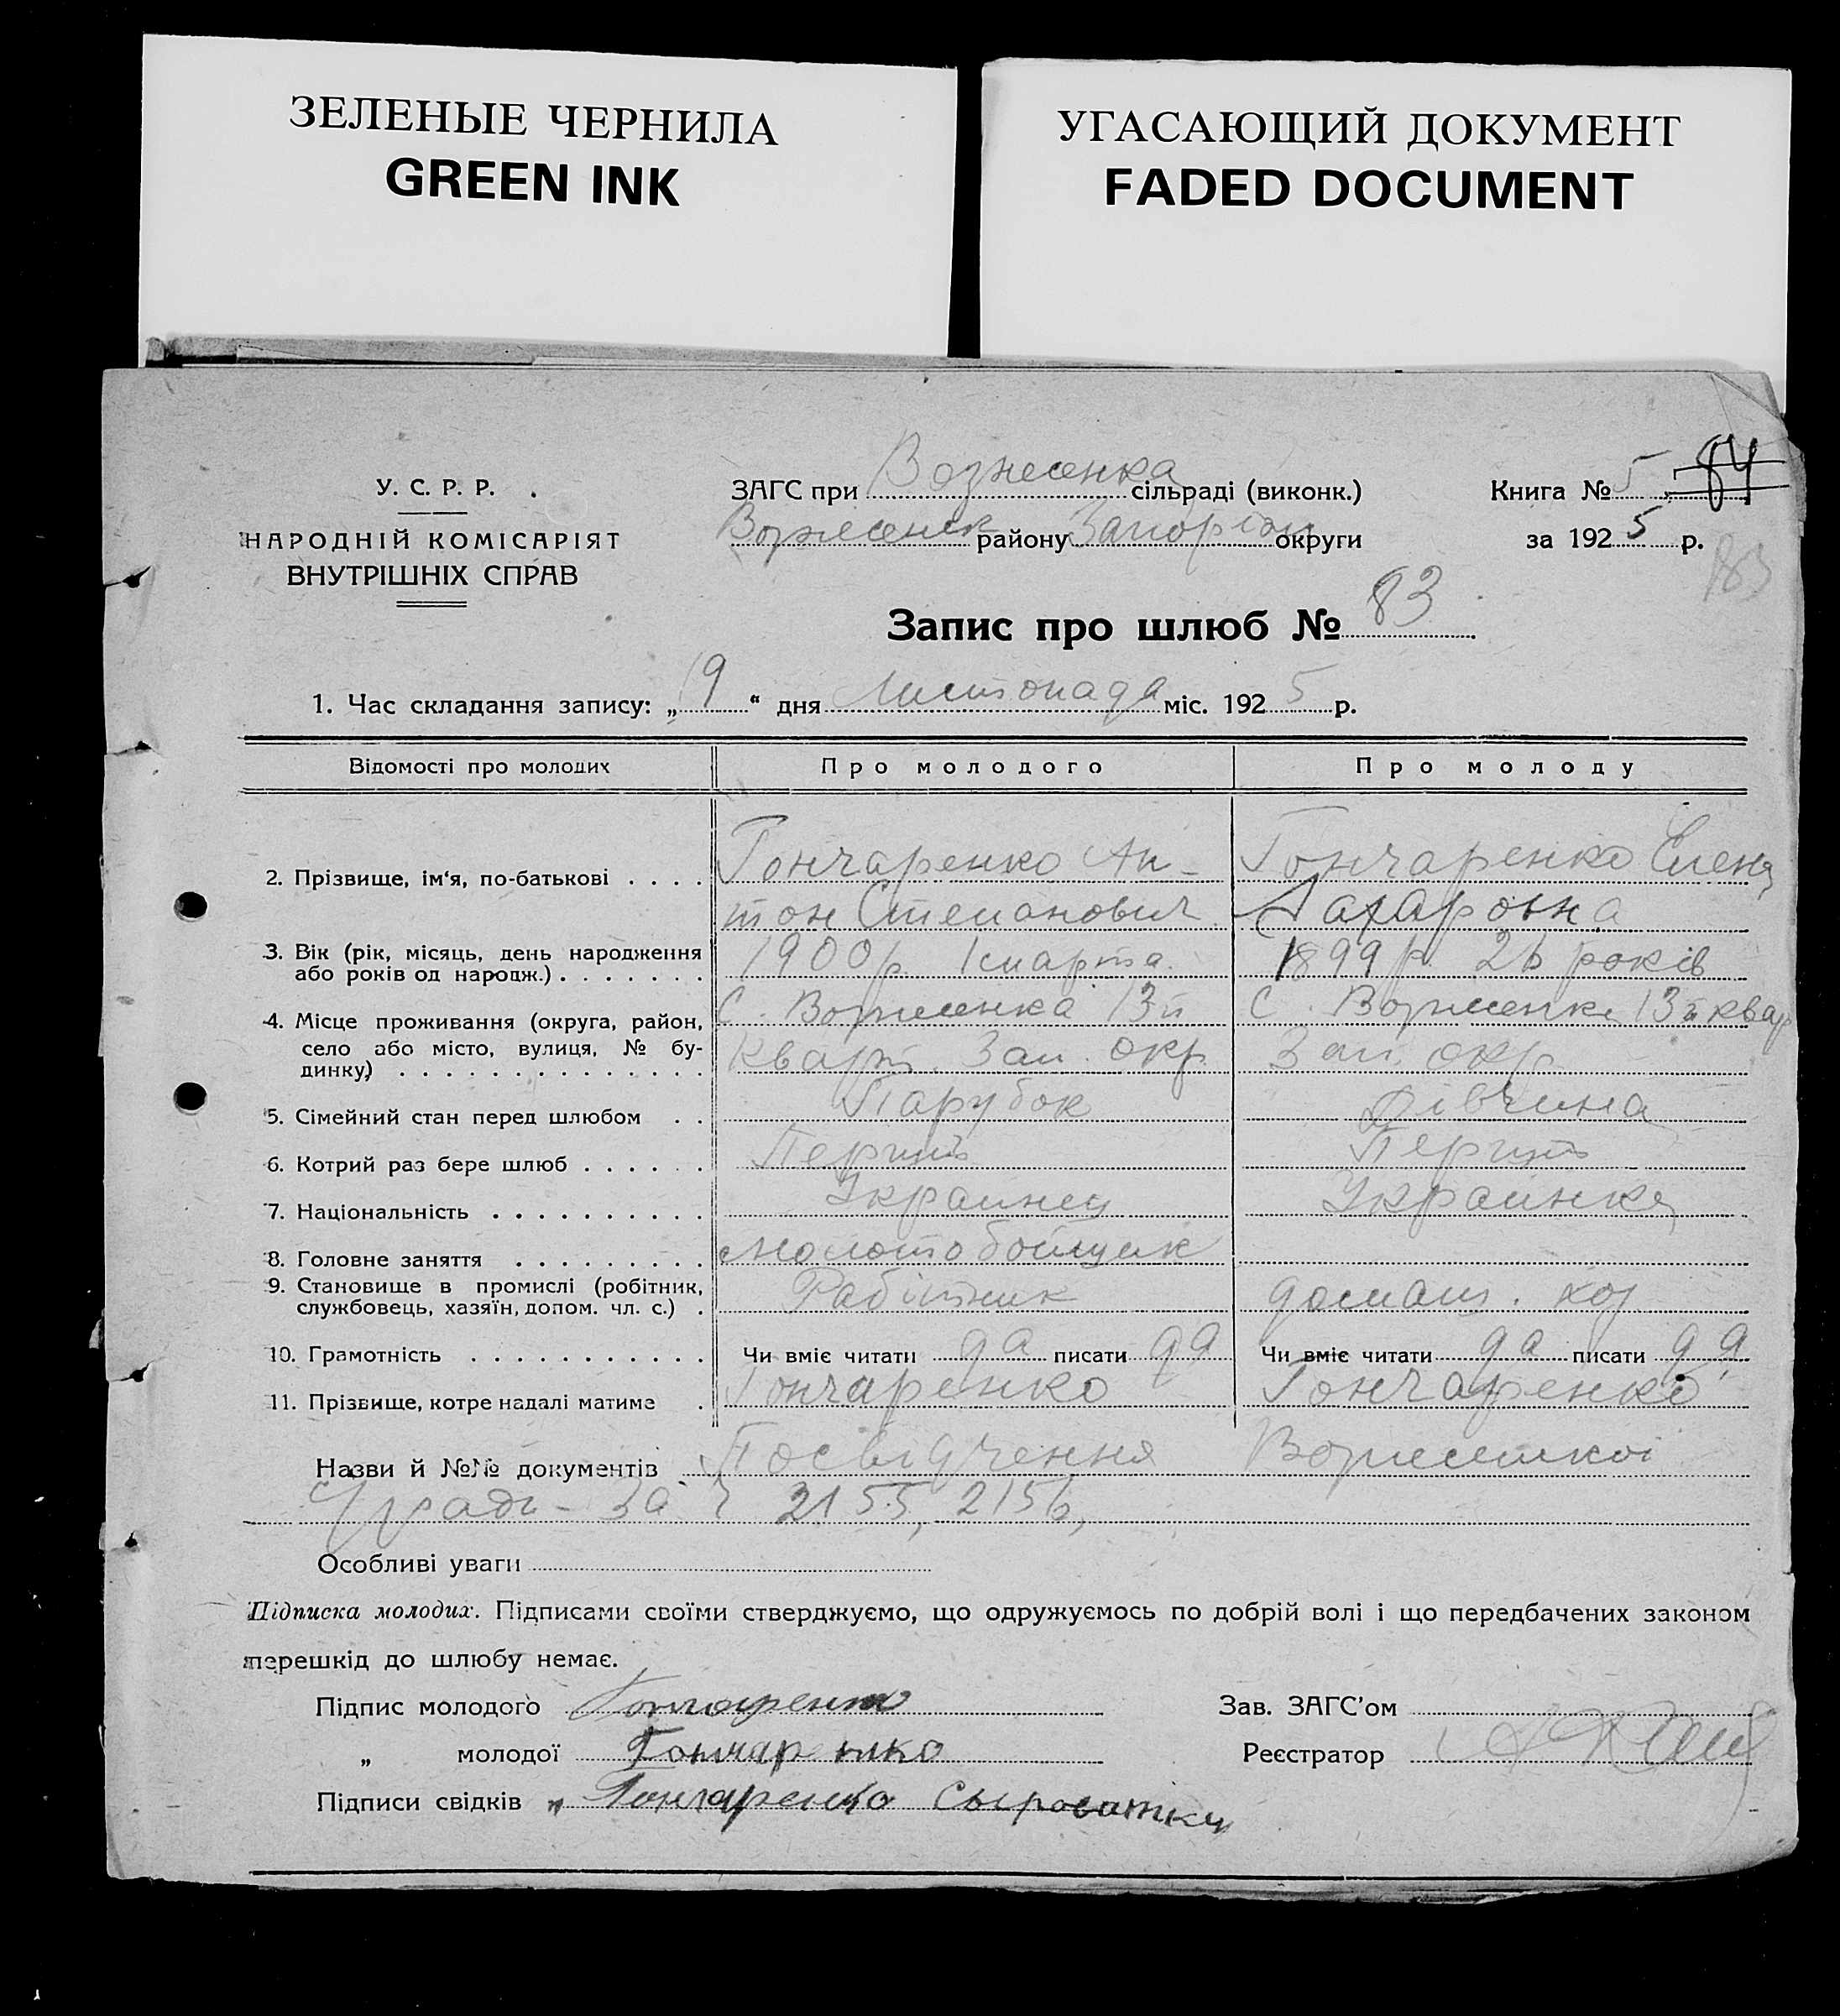 ЗЕЛЕНЫЕ ЧЕРНИЛА
GREEN INK
УГАСАЮЩИЙ ДОКУМЕНТ
FADED DOCUMENT
У. С. Р. Р.
НАРОДНІЙ КОМІСАРІЯТ
ВНУТРІШНІХ СПРАВ
ЗАГС при Вознесенка сільраді (виконк.)
Вознесенск району Запоріж округи
Книга № 5 84
за 1925 р.
183
Запис про шлюб № 83
1. Час складання запису: „19“ дня Листопада міс. 1925 р.
Відомості про молодих Про молодого Про молоду
2. Прізвище, ім‘я, по-батькові . . . . Гончаренко Ан- Гончаренко Елена
тон Степанович Захаровна
3. Вік (рік, місяць, день народження 1900р. 1 марта. 1899р. 26 років
або років од народж.) . . . . . . .
4. Місце проживання (округа, район, С. Вознесенка 13й С. Вознесенка 13й квар
село або місто, вулиця, № бу- Кварт. Зап. окр. Зап. окр
динку) . . . . . . . . . . . . . .
5. Сімейний стан перед шлюбом . . Парубок Дівчина
6. Котрий раз бере шлюб . . . . . . Перший Перший
7. Національність . . . . . . . . . . Украинец Украинка
8. Головне заняття . . . . . . . . . Молотобойщик
9. Становище в промислі (робітник, Рабітник домаш. хоз.
службовець, хазяїн, допом. чл. с.) .
10. Грамотність . . . . . . . . . . . Чи вміє читати да писати да Чи вміє читати да писати да
11. Прізвище, котре надалі матиме . Гончаренко Гончаренко
Назви й №№ документів Посвідчення Вознесенкої
За 2155, 2156,
Особливі уваги
Підписка молодих. Підписами своїми стверджуємо, що одружуємось по добрій волі і що передбачених законом
перешкід до шлюбу немає.
Підпис молодого Гончаренко Зав. ЗАГС’ом
„ молодої Гончаренко Реєстратор
Підписи свідків „ Гончаренко Сыроватка